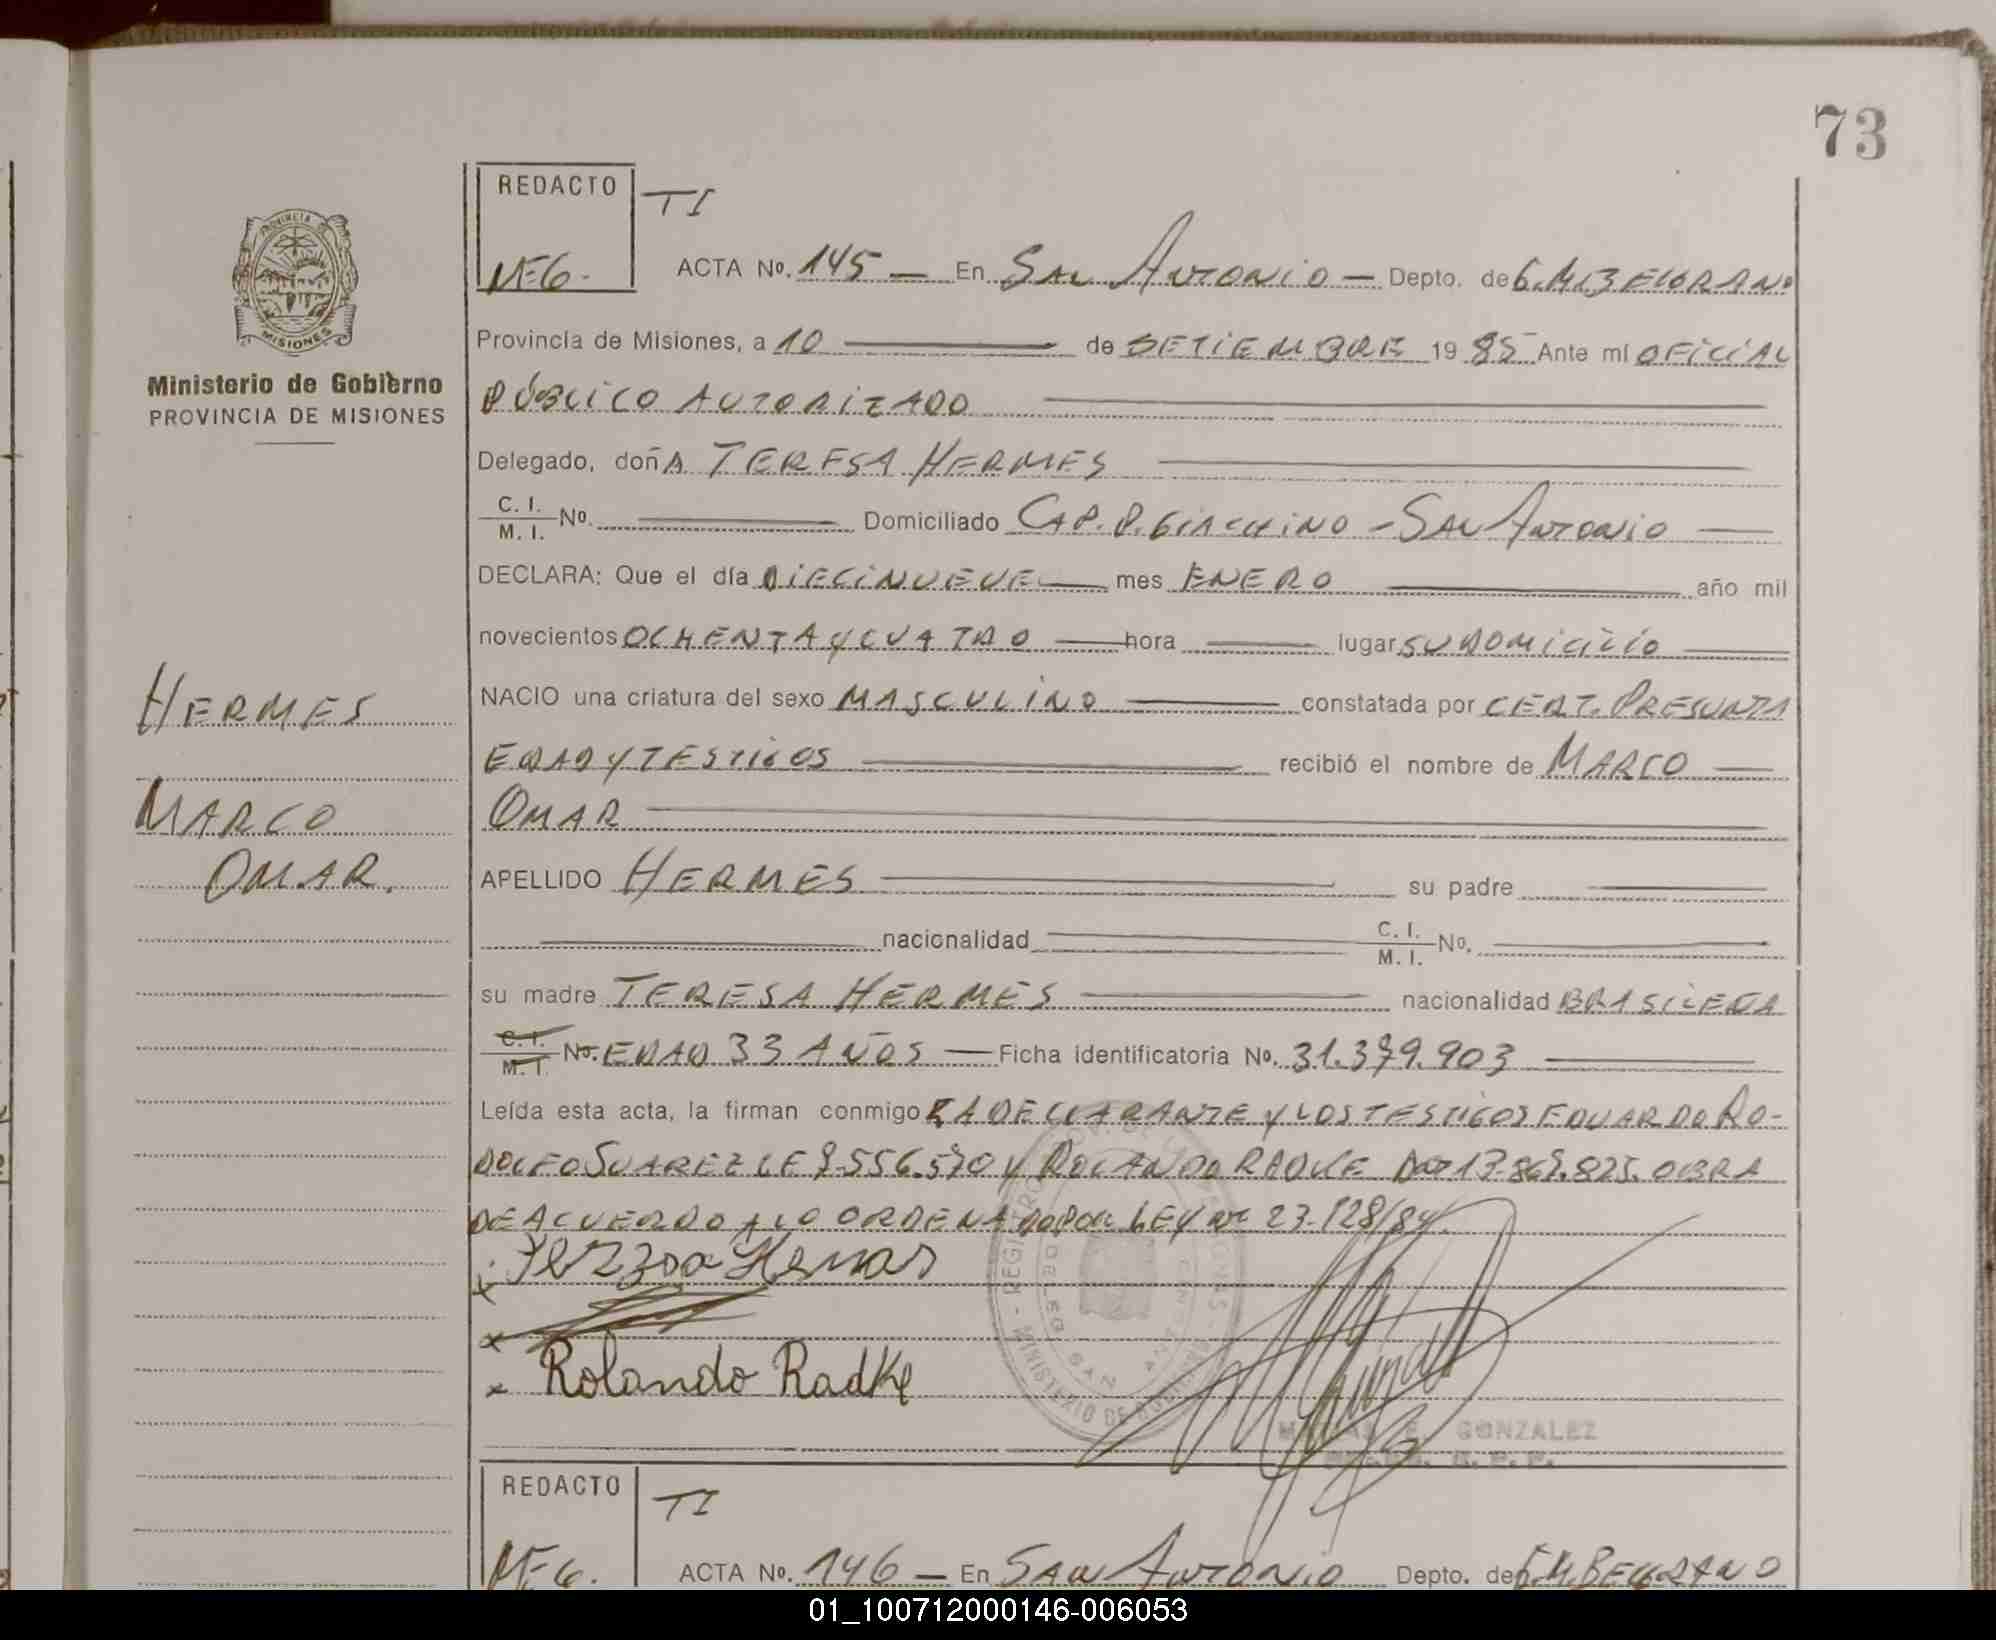 73
REDACTO
TI
MEG.
ACTA No. 145 — En SAN ANTONIO — Depto. de G.M.BELGRANO
PROVINCIA
MISIONES
Ministerio de Gobierno
PROVINCIA DE MISIONES
Provincia de Misiones, a 10 — de SETIEMBRE 19 85 Ante mi OFICIAL
PÚBLICO AUTORIZADO
Delegado, doñA TERESA HERMES
C. I.
M. I. No. — Domiciliado CAP. P. GIACHINO - SAN ANTONIO —
DECLARA: Que el día DIECINUEVE — mes ENERO — año mil
novecientos OCHENTA Y CUATRO — hora — lugar SU DOMICILIO —
HERMES
NACIO una criatura del sexo MASCULINO — constatada por CERT. PRESUNTA
EDAD Y TESTIGOS — recibió el nombre de MARCO —
MARCO
OMAR
OMAR.
APELLIDO HERMES — su padre —
— nacionalidad — C. I.
M. I. No. —
su madre TERESA HERMES — nacionalidad BRASILEÑA
C. I.
M. I. No. EDAD 33 AÑOS — Ficha Identificatoria No. 31.379.903 —
Leída esta acta, la firman conmigo LA DECLARANTE Y LOS TESTIGOS EDUARDO RO-
DOLFO SUAREZ LE 8.556.570 Y ROLANDO RADKE DNI 13.869.825. OBRA
DE ACUERDO A LO ORDENADO POR LEY Nº 23.128/84.
x
x
x Rolando Radke
GONZALEZ
REDACTO
TI
MEG.
ACTA No. 146 — En SAN ANTONIO Depto. de G.M.BELGRANO
01_100712000146-006053